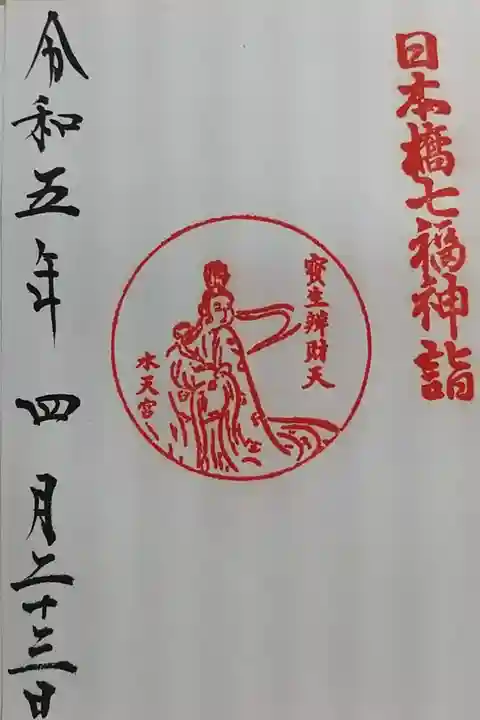 日本橋七福神詣
寳生辨財天
水天宮
令和五年 四月二十三日